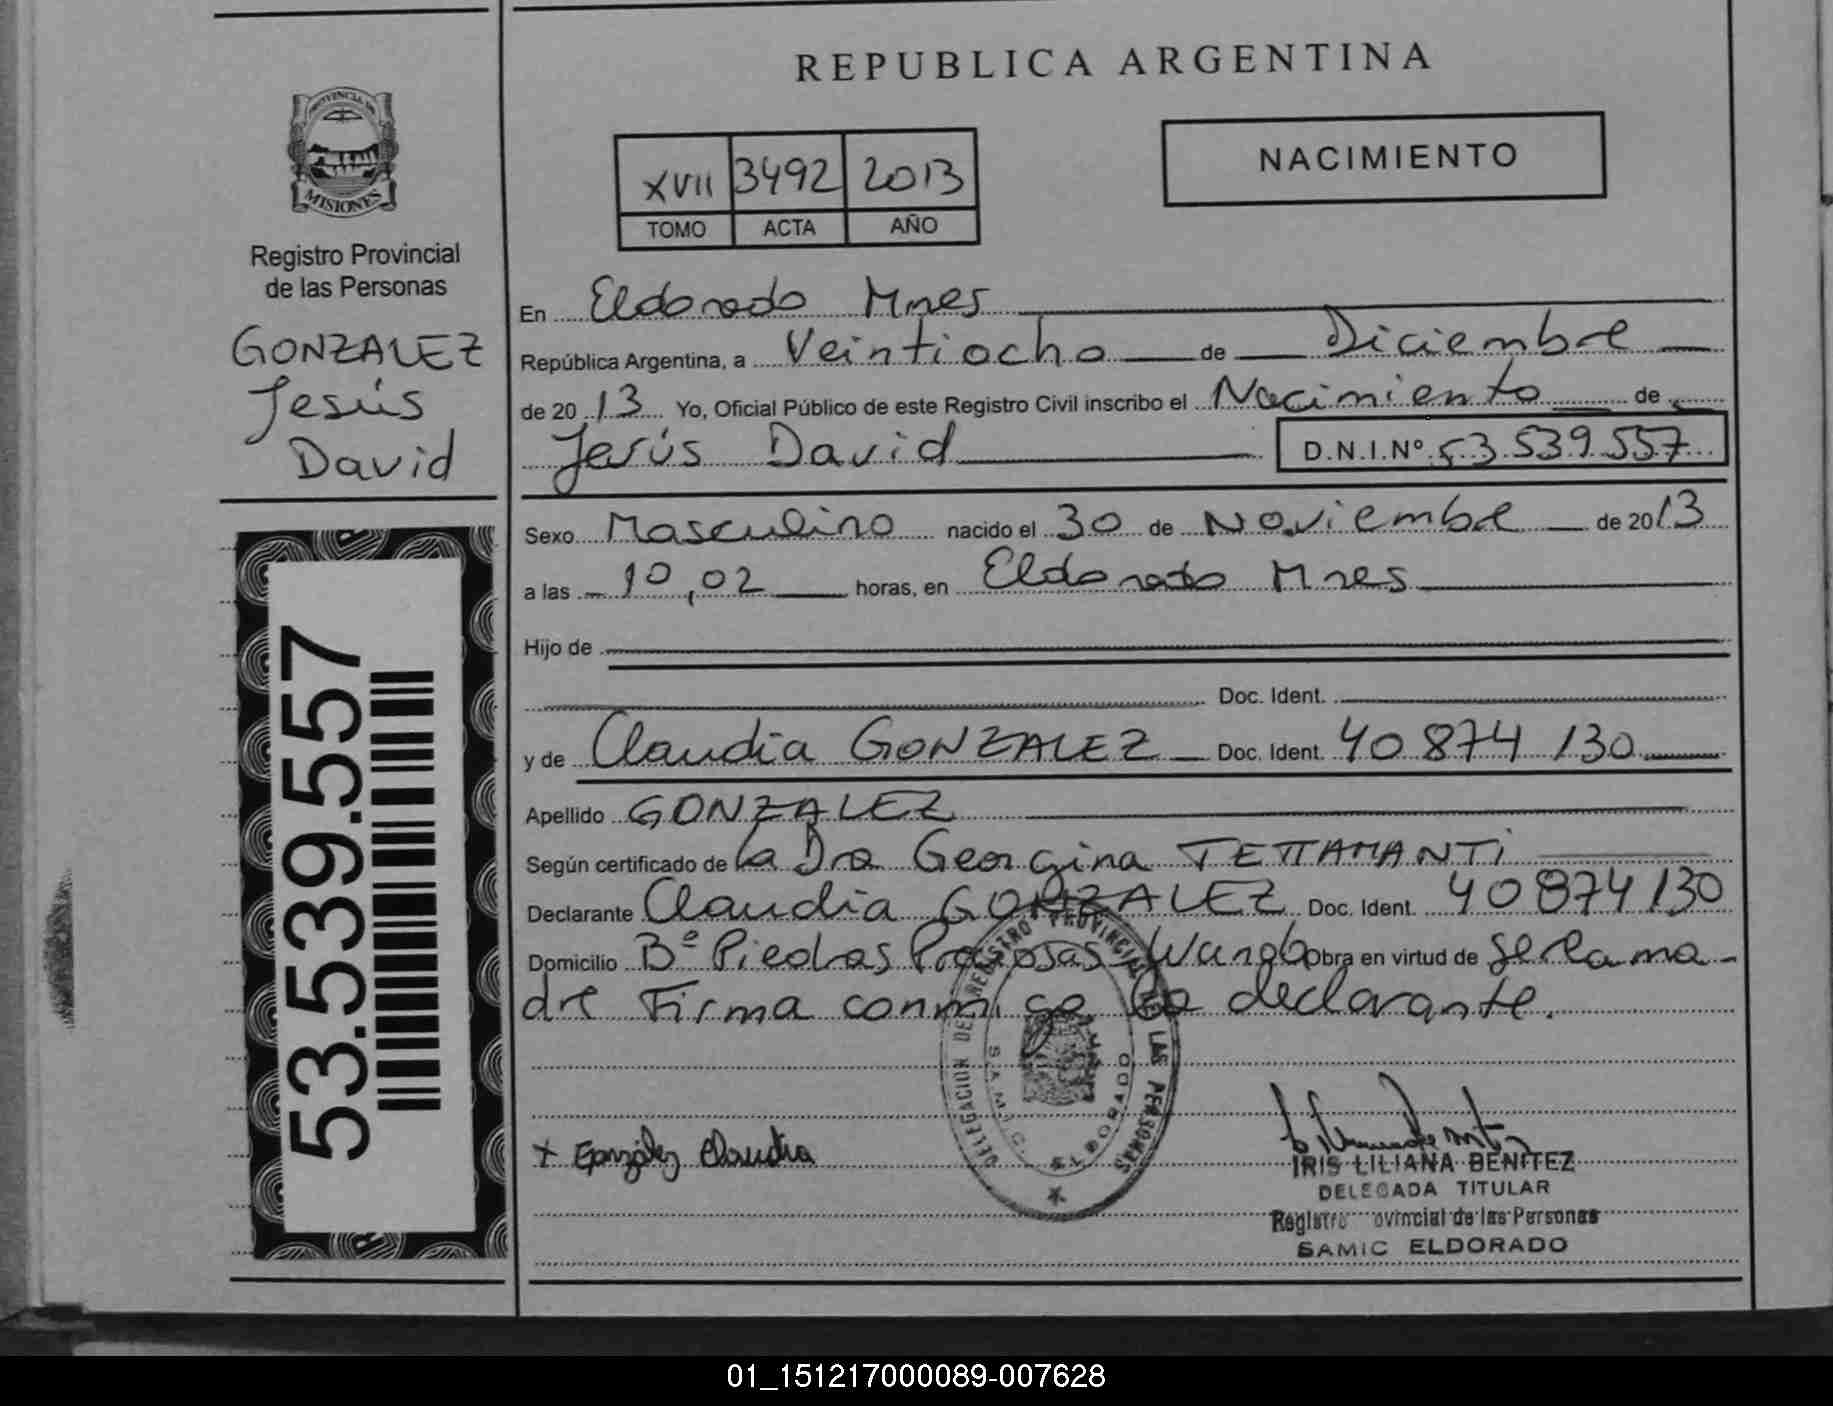 REPUBLICA ARGENTINA
PROVINCIA DE
MISIONES
Registro Provincial
de las Personas
GONZALEZ
Jesús
David
53.539.557
XVII 3492 2013
TOMO ACTA AÑO
NACIMIENTO
En Eldorado Mnes
República Argentina, a Veintiocho de Diciembre
de 2013 Yo, Oficial Público de este Registro Civil inscribo el Nacimiento de
Jesús David D.N.I.Nº 53.539.557
Sexo Masculino nacido el 30 de Noviembre de 2013
a las 10,02 horas, en Eldorado Mnes
Hijo de
Doc. Ident.
y de Claudia GONZALEZ Doc. Ident. 40 874 130
Apellido GONZALEZ
Según certificado de la Dra Georgina TETTAMANTI
Declarante Claudia GONZALEZ Doc. Ident. 40874130
Domicilio Bº Piedras Preciosas Wanda Obra en virtud de ser la ma-
dre Firma conmigo la declarante.
DELEGACION DEL REGISTRO PROVINCIAL DE LAS PERSONAS
S.A.M.I.C. ELDORADO
+ González Claudia
IRIS LILIANA BENITEZ
DELEGADA TITULAR
Registro ovincial de las Personas
SAMIC ELDORADO
01_151217000089-007628